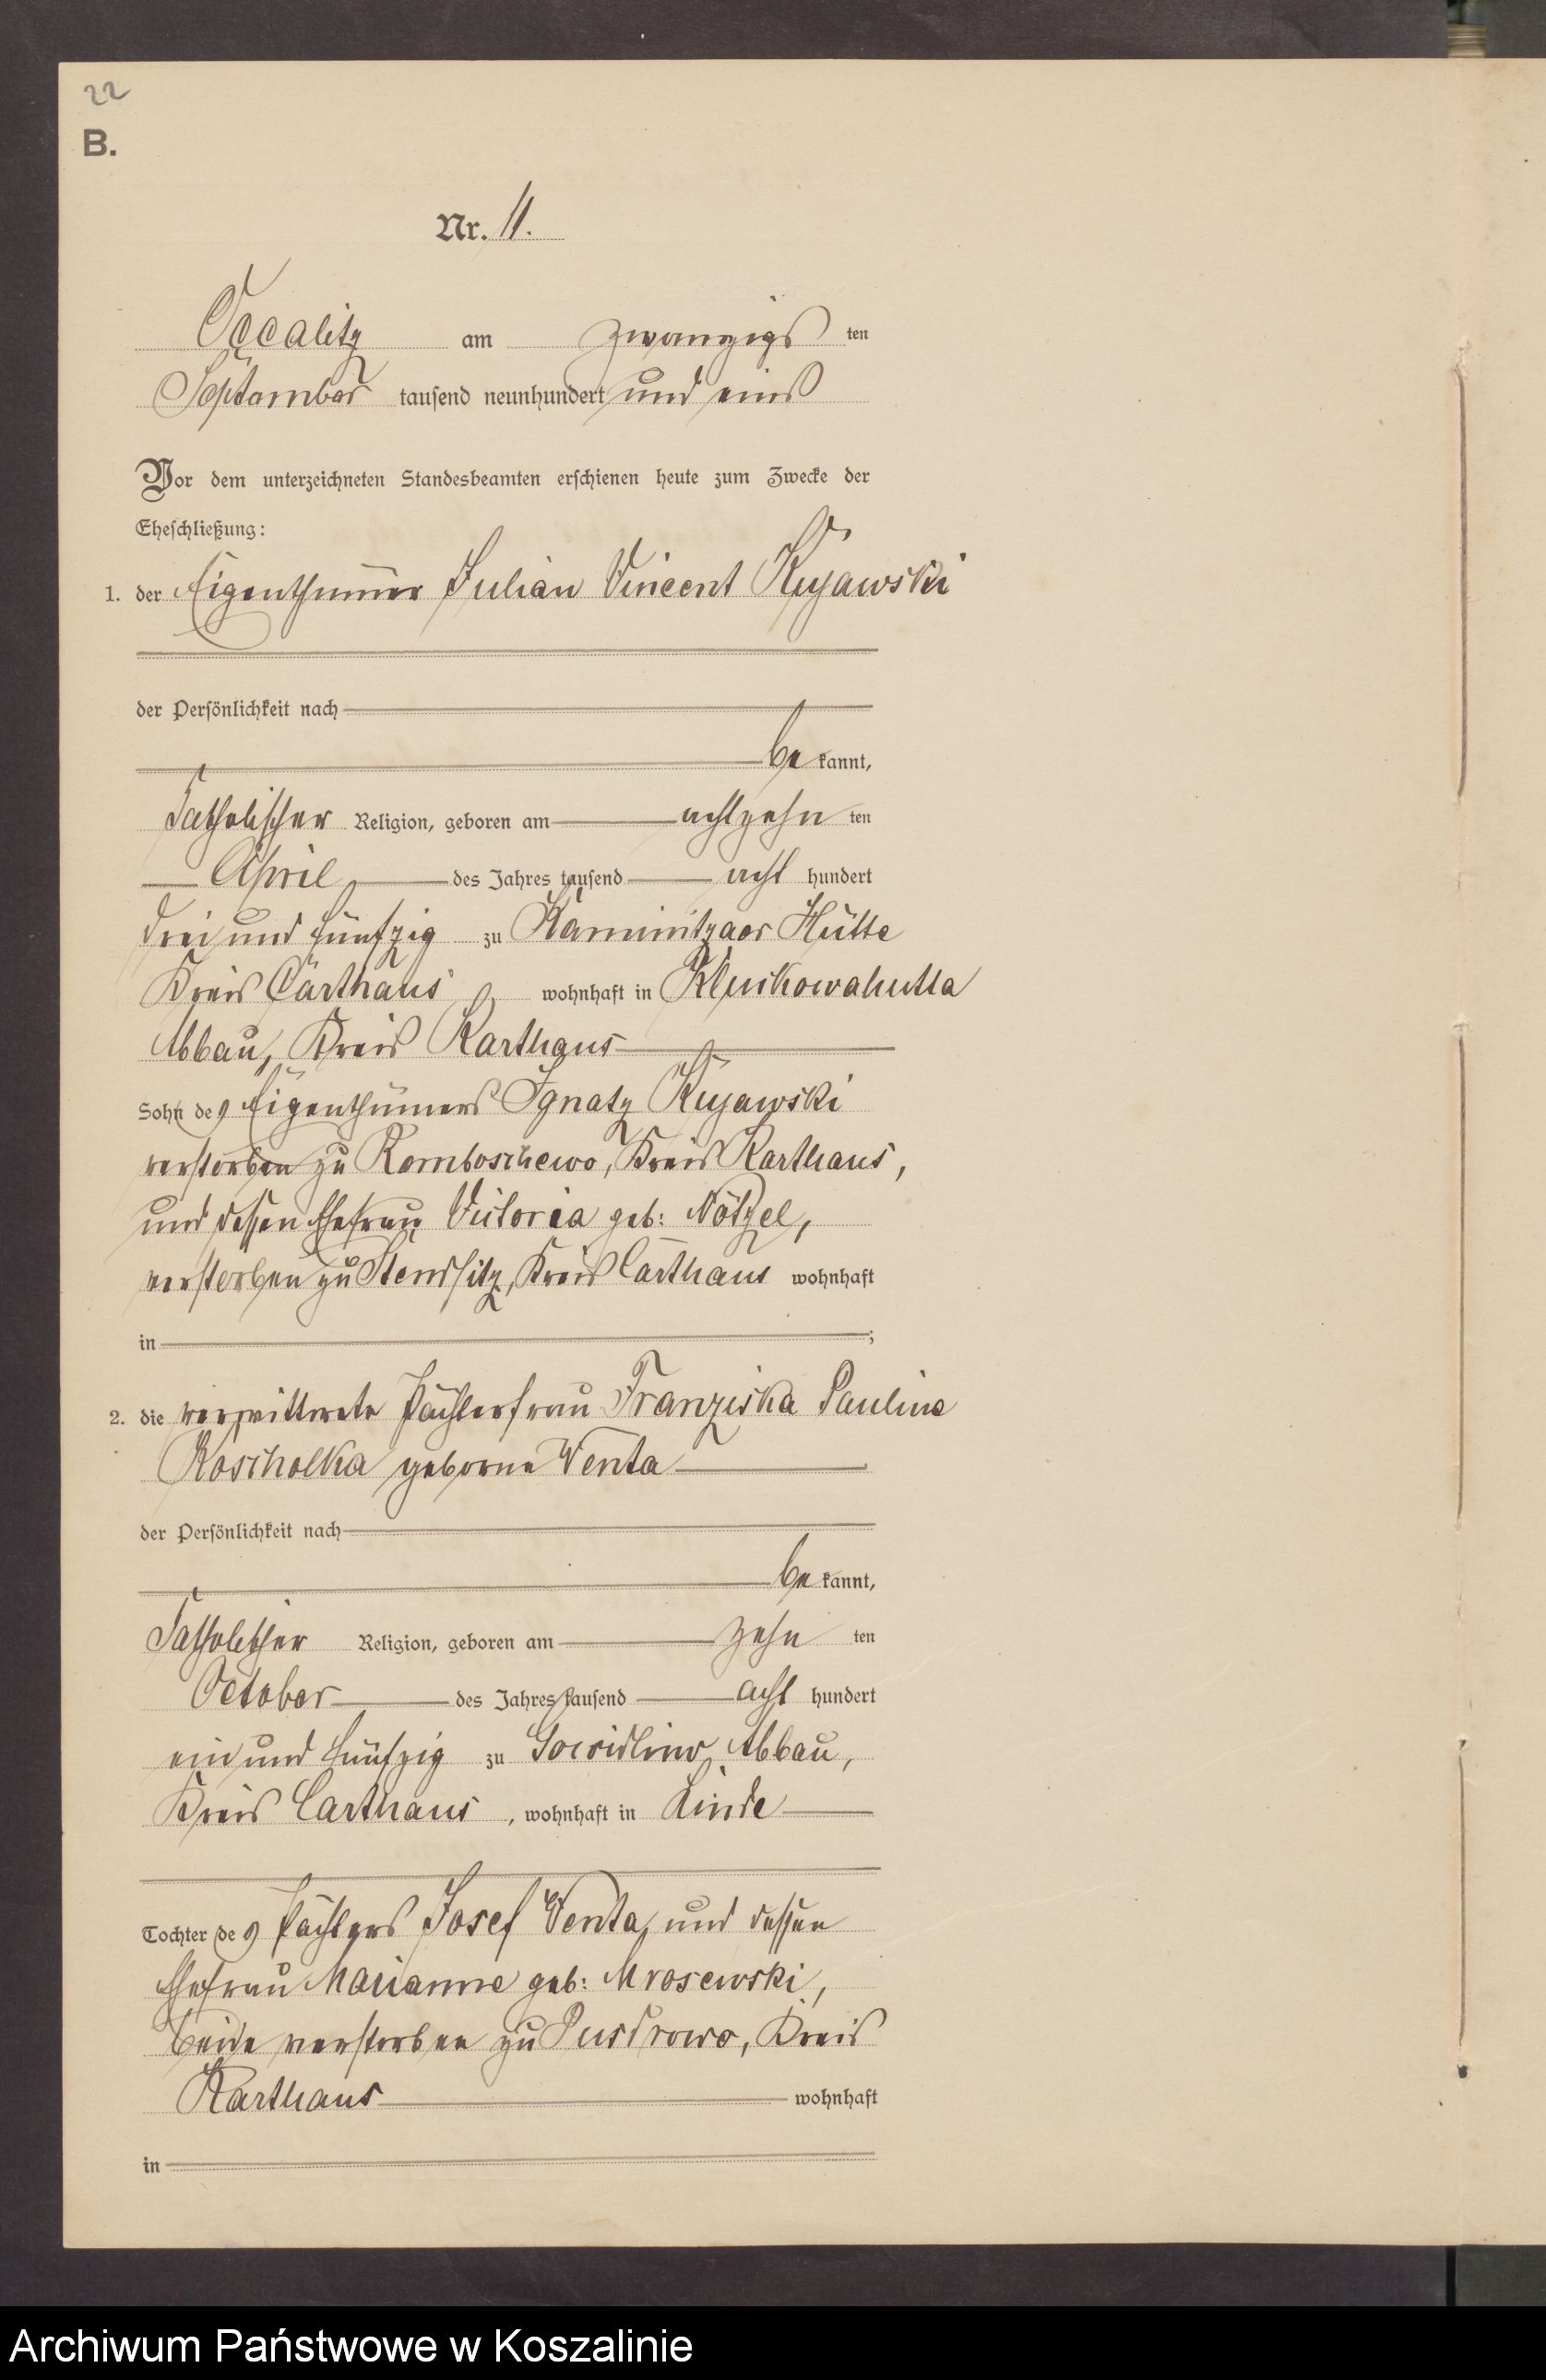 22
B.
Nr. 11.
Occalitz am zwanzigs ten
September tausend neunhundert und eins
Vor dem unterzeichneten Standesbeamten erschienen heute zum Zwecke der
Eheschließung:
1. der Eigenthümer Julian Vincent Kujawski
der Persönlichkeit nach
be kannt,
katholischer Religion, geboren am achtzehn ten
April des Jahres tausend acht hundert
drei und fünfzig zu Kaminitzaer Hütte
Kreis Carthaus, wohnhaft in Kluskowahutta
Abbau, Kreis Karthaus
Sohn des Eigenthümers Ignatz Kujawski
verstorben zu Komboschewo, Kreis Karthaus,
und dessen Ehefrau Victoria geb: Nötzel,
verstorben zu Stendsitz, Kreis Carthaus wohnhaft
in ;
2. die verwittwete Pächterfrau Franziska Pauline
Koscholka geborne Wenta
der Persönlichkeit nach
be kannt,
katholischer Religion, geboren am zehn ten
October des Jahres tausend acht hundert
ein und fünfzig zu Gowidlino Abbau,
Kreis Carthaus, wohnhaft in Linde
Tochter des Pächters Josef Wenta, und dessen
Ehefrau Marianne geb: Mrosewski,
beide verstorben zu Pusdrowo, Kreis
Karthaus wohnhaft
in
Archiwum Państwowe w Koszalinie